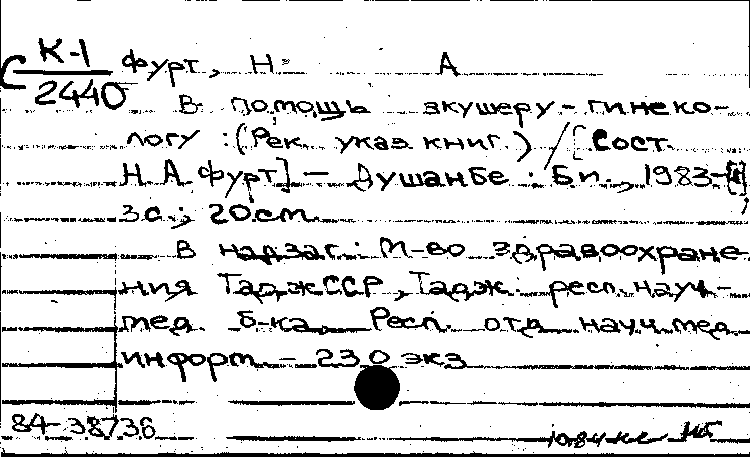 С К-1
2440
Фурт, Н. А
В помощь акушеру-гинеко-
логу : (Рек. указ. книг.) / [Сост.
Н. А. Фурт] — Душанбе : Б. и., 1983.
3 с.; 20 см.
В надзаг.: М-во здравоохране
ния ТаджССР, Тадж. респ. науч.-
мед. б-ка, Респ. отд. науч. мед.
информ. — 230 экз
84-38736